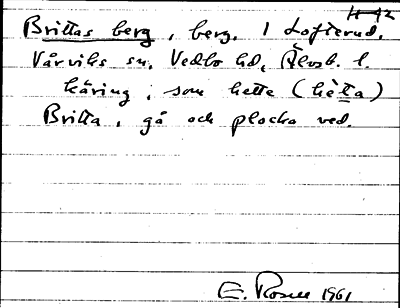 H 42
Brittas berg, berg. 1 Lofterud,
Vårviks sn, Vedbo hd, Älvsb. l.
käring, som hette (hètta)
Britta, gå och plocka ved.
E. Rosell 1961